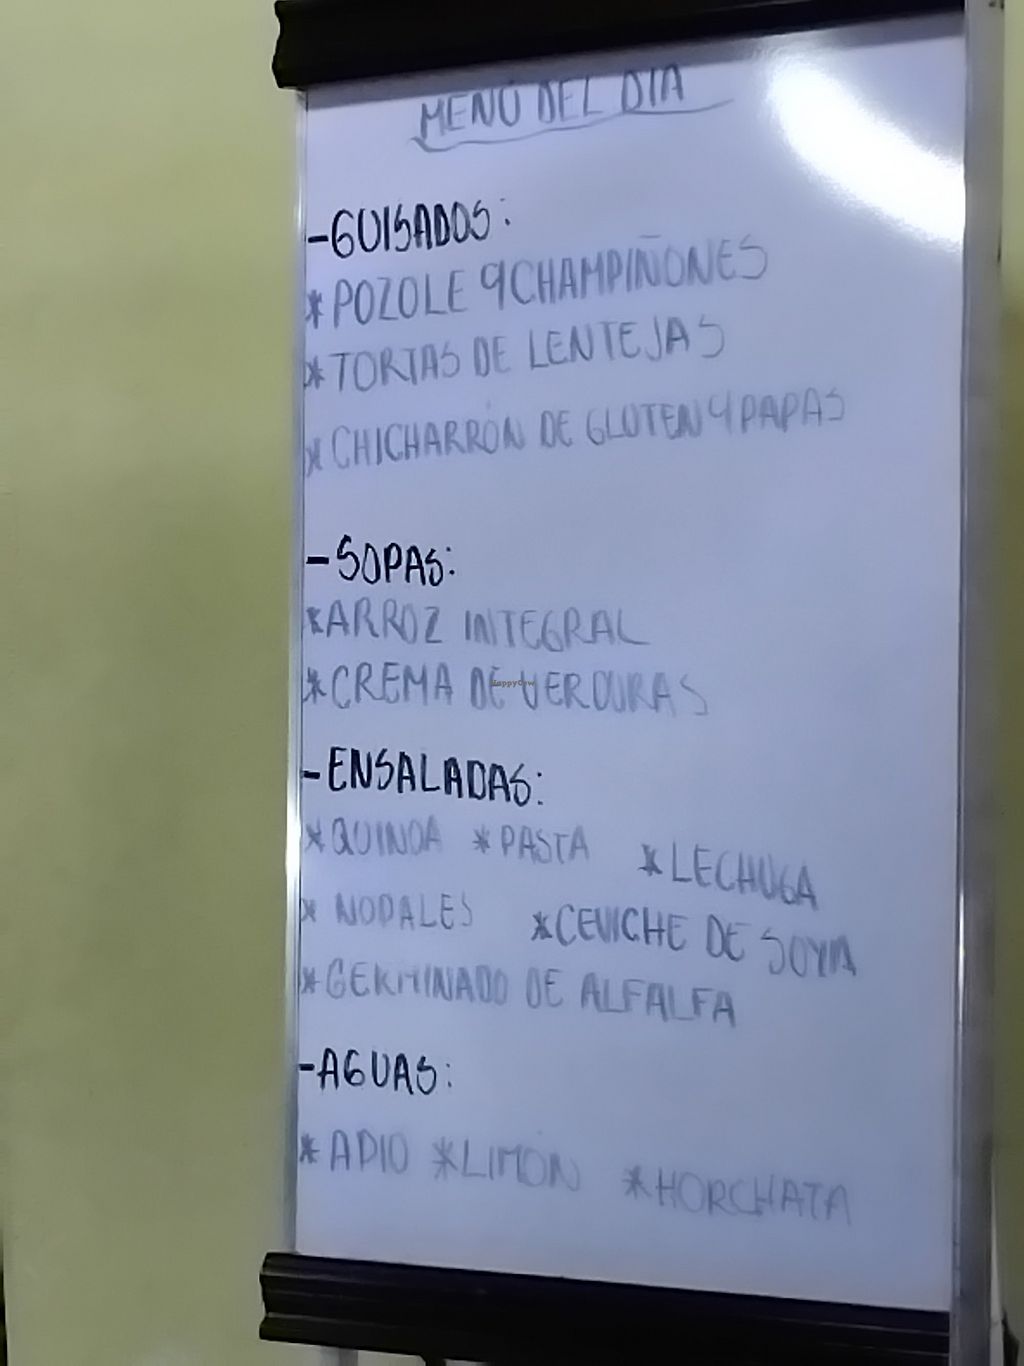 MENÚ DEL DIA
-GUISADOS:
*POZOLE Y CHAMPIÑONES
*TORTAS DE LENTEJAS
*CHICHARRÓN DE GLUTEN Y PAPAS
-SOPAS:
*ARROZ INTEGRAL
*CREMA DE VERDURAS
HappyCow
-ENSALADAS:
*QUINOA *PASTA *LECHUGA
*NOPALES *CEVICHE DE SOYA
*GERMINADO DE ALFALFA
-AGUAS:
*APIO *LIMÓN *HORCHATA